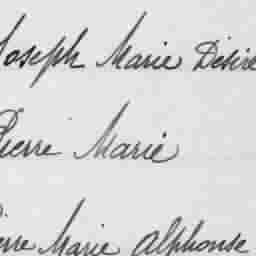 Joseph Marie Désiré
Pierre Marie
Pierre Marie Alphonse